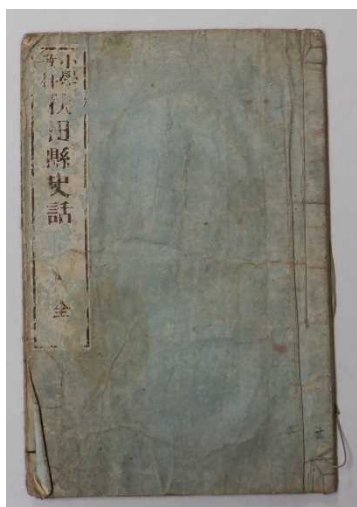 小學
教科
秋田縣史話
全